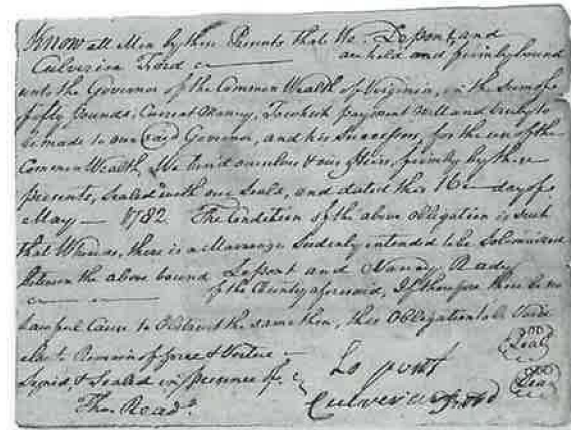 Know all Men by these Presents that We. Lepont, and
Culverin Ford are held and firmly bound
unto the Governor of the Common Wealth of Virginia, in the sum of
fifty Pounds, Current Money, To which payment well and truly to
be made to our said Governor, and his Successors, for the use of the
Common Wealth, We bind ourselves & our Heirs, firmly by these
presents, Sealed with our Seals, and dated this 16 day of
May 1782. The Condition of the above obligation is Such
that Whereas, there is a Marriage Sudenly intended to be Solemnized
Between the above bound Lepont and Nancy Ready
of the County aforesaid, If therefore there be no
Lawful Cause to Obstruct the same then, this Obligation to be Void
else to Remain of force & Vertue
Signed, & Sealed in presence of
Lepont Seal
Culverin Ford Seal
Thos. Read